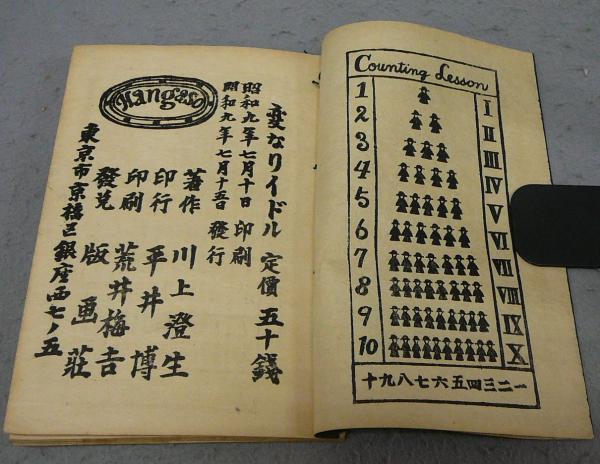 変なリイドル 定價 五十錢
昭和九年七月十日 印刷
昭和九年七月十五日 發行
著作 川上澄生
印行 平井博
印刷 荒井梅吉
發兌 版画莊
東京市京橋区銀座西七ノ五
Hangaso
Counting Lesson
1 I
2 II
3 III
4 IV
5 V
6 VI
7 VII
8 VIII
9 IX
10 X
一二三四五六七八九十